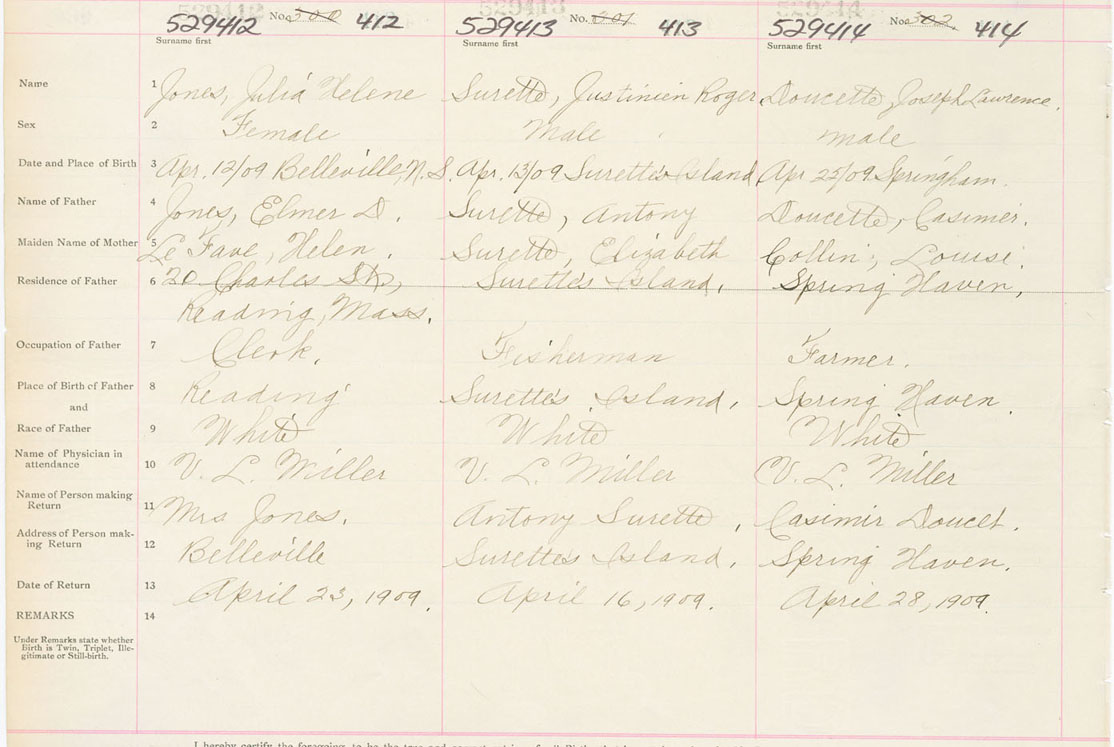 529412 No. 300 412 529413 No. 301 413 529414 No. 302 414
Surname first Surname first Surname first
Name 1 Jones, Julia Helene Surette, Justinien Roger. Doucette, Joseph Lawrence.
Sex 2 Female Male male
Date and Place of Birth 3 Apr. 12/09 Belleville, N. S. Apr. 13/09 Surette's Island. Apr 25/09 Springham.
Name of Father 4 Jones, Elmer D. Surette, Antony Doucette, Casimir.
Maiden Name of Mother 5 Le Fave, Helen. Surette, Elizabeth Collin, Louise.
Residence of Father 6 20 Charles St, Surette's Island. Spring Haven,
Reading, Mass.
Occupation of Father 7 Clerk. Fisherman Farmer.
Place of Birth of Father 8 Reading Surette's Island. Spring Haven.
and
Race of Father 9 White White White
Name of Physician in
attendance 10 V. L. Miller V. L. Miller V. L. Miller
Name of Person making
Return 11 Mrs Jones. Antony Surette, Casimir Doucet.
Address of Person mak-
ing Return 12 Belleville Surette's Island. Spring Haven.
Date of Return 13 April 23, 1909. April 16, 1909. April 28, 1909.
REMARKS 14
Under Remarks state whether
Birth is Twin, Triplet, Ille-
gitimate or Still-birth.
I hereby certify the foregoing to be the true and